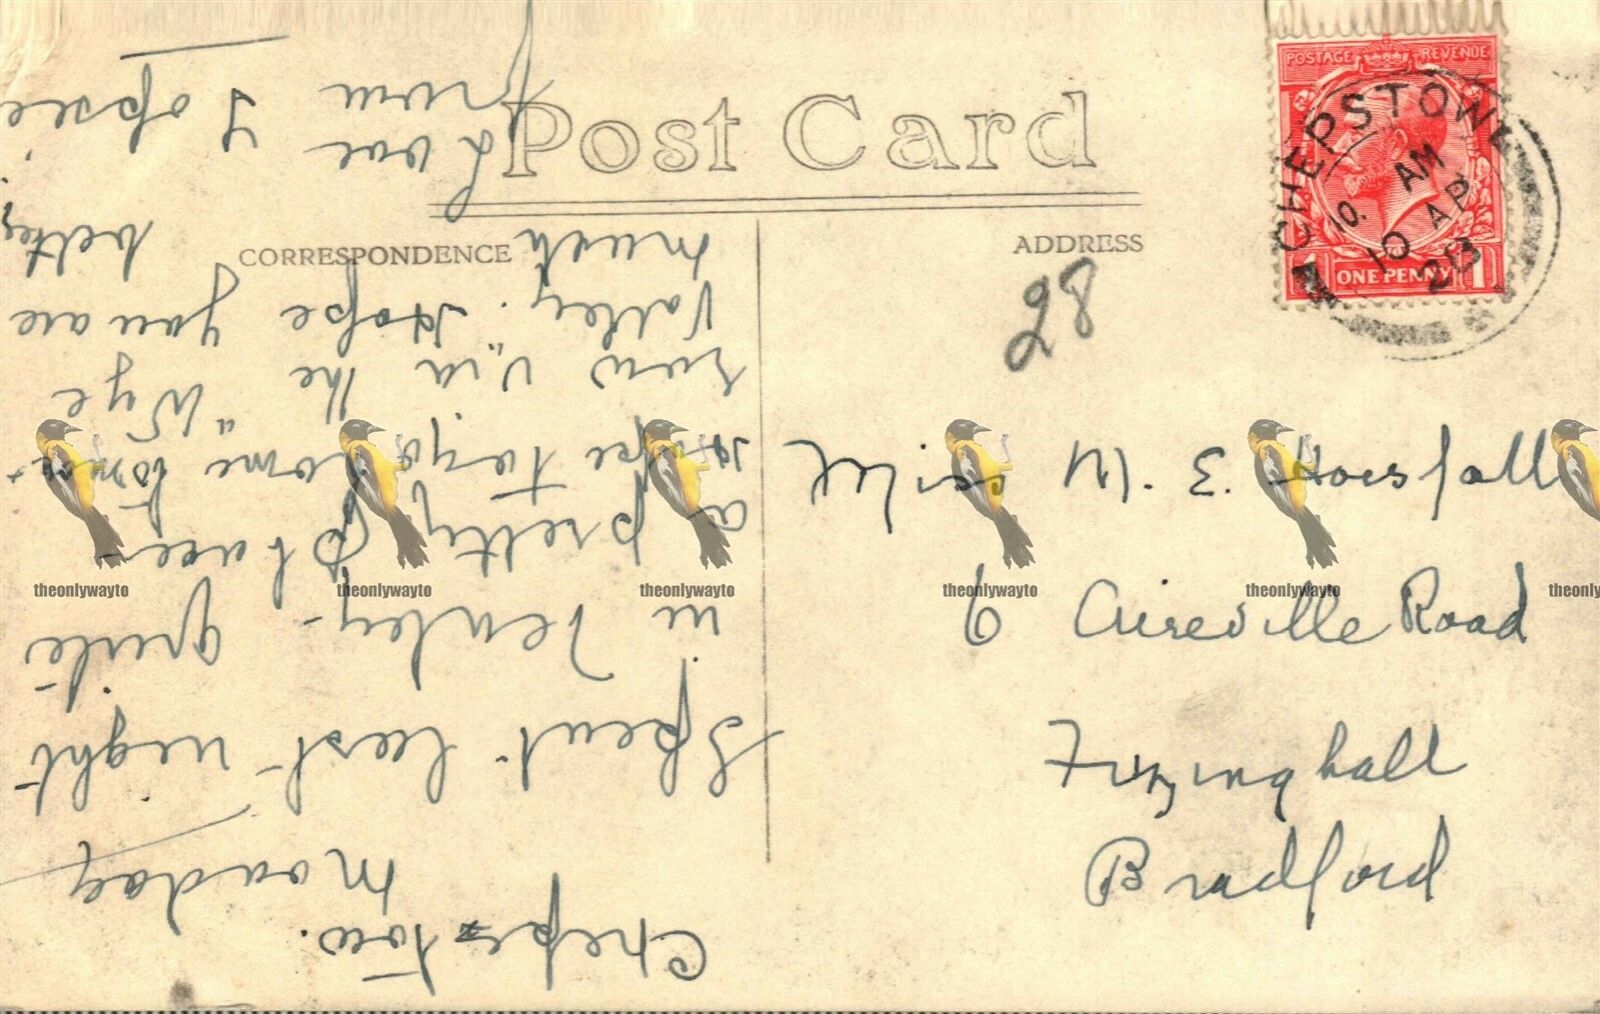 Post Card
CORRESPONDENCE
ADDRESS
POSTAGE REVENUE
ONE PENNY
CHEPSTOW
10. AM
10 AP
28
28
Miss M. E. Horsfall
6 Aireville Road
Frizinghall
Bradford
Chepstow.
Monday
Spent last night
in Tenby - quite
a pretty place -
Hope to go home
now via the "Wye
Valley". Hope you are
much better,
Love
from Topsie
theonlywayto theonlywayto theonlywayto theonlywayto theonlywayto theonly